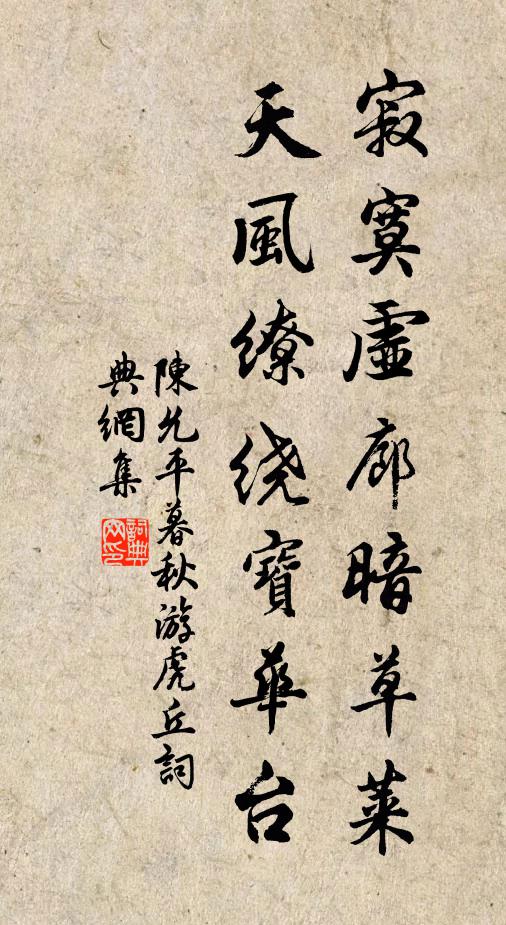 寂寞虛廊暗草萊
天風繚绕寶華台
陳允平暮秋游虎丘詞
典網集
詞典网印